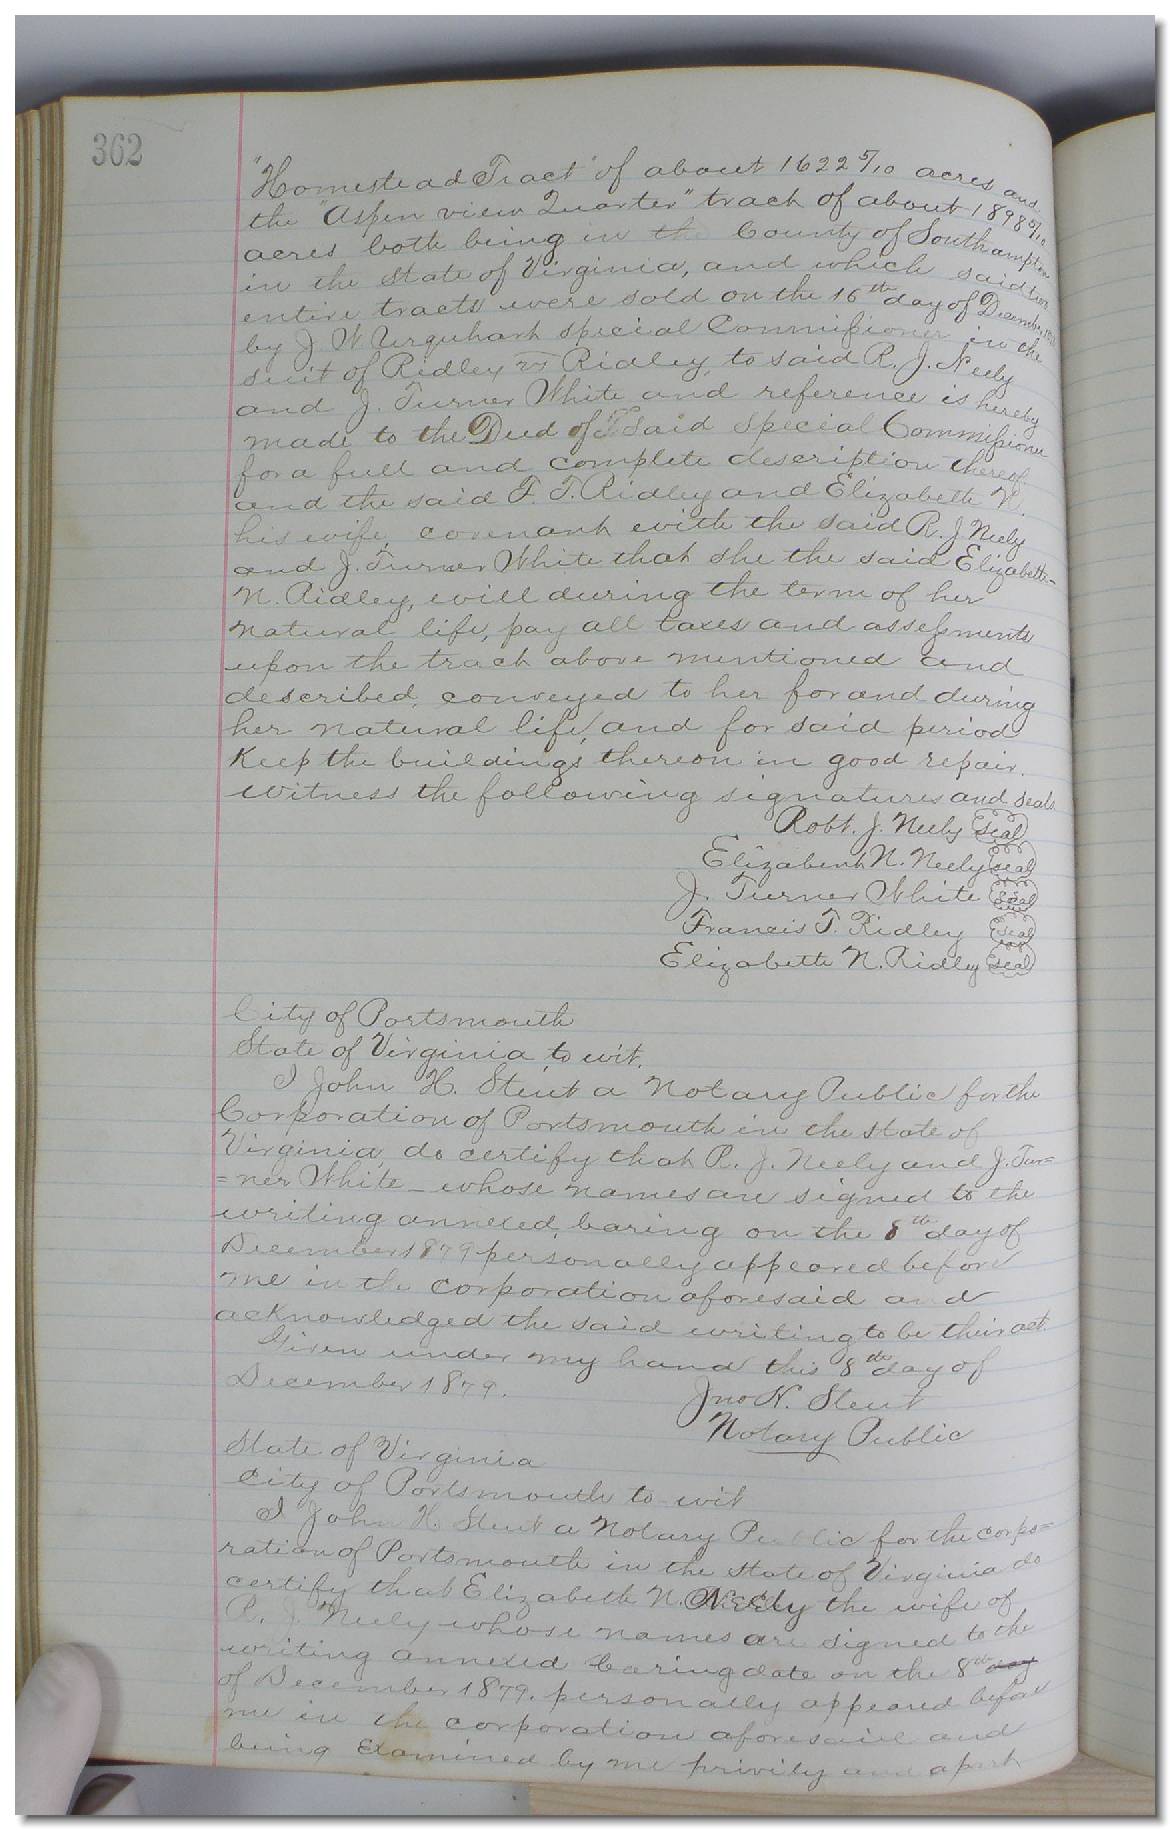 362
"Homestead Tract" of about 1622 5/10 acres and
the "Aspen view Quarter" track of about 1898 5/10
acres both being in the County of Southampton
in the State of Virginia, and which said two
entire tracts were sold on the 16th day of December
by J W Urquhart special Commissioner in the
suit of Ridley vs Ridley, to said R. J. Neely
and J. Turner White and reference is hereby
made to the Deed of said special Commissioner
for a full and complete description thereof.
and the said F. T. Ridley and Elizabeth N.
his wife, covenant with the said R. J. Neely
and J. Turner White that she the said Elizabeth
N. Ridley, will during the term of her
natural life, pay all taxes and assessments
upon the track above mentioned and
described, conveyed to her for and during
her natural life, and for said period
Keep the buildings thereon in good repair.
Witness the following signatures and seals
Robt. J. Neely seal
Elizabeth N. Neely seal
J. Turner White seal
Francis T. Ridley seal
Elizabeth N. Ridley seal
City of Portsmouth
State of Virginia to wit.
I John H. Stent a Notary Public for the
Corporation of Portsmouth in the state of
Virginia do certify that R. J. Neely and J. Tur=
=ner White whose names are signed to the
writing annexed, baring on the 8th day of
December 1879 personally appeared before
me in the corporation aforesaid and
acknowledged the said writing to be their act.
Given under my hand this 8th day of
December 1879.
Jno H. Stent
Notary Public
State of Virginia
City of Portsmouth to wit
I John H. Stent a Notary Public for the corpo=
ration of Portsmouth in the state of Virginia do
certify that Elizabeth N. Neely the wife of
R. J. Neely whose names are signed to the
writing annexed baring date on the 8th day
of December 1879. personally appeared before
me in the corporation aforesaid and
being Examined by me privily and apart